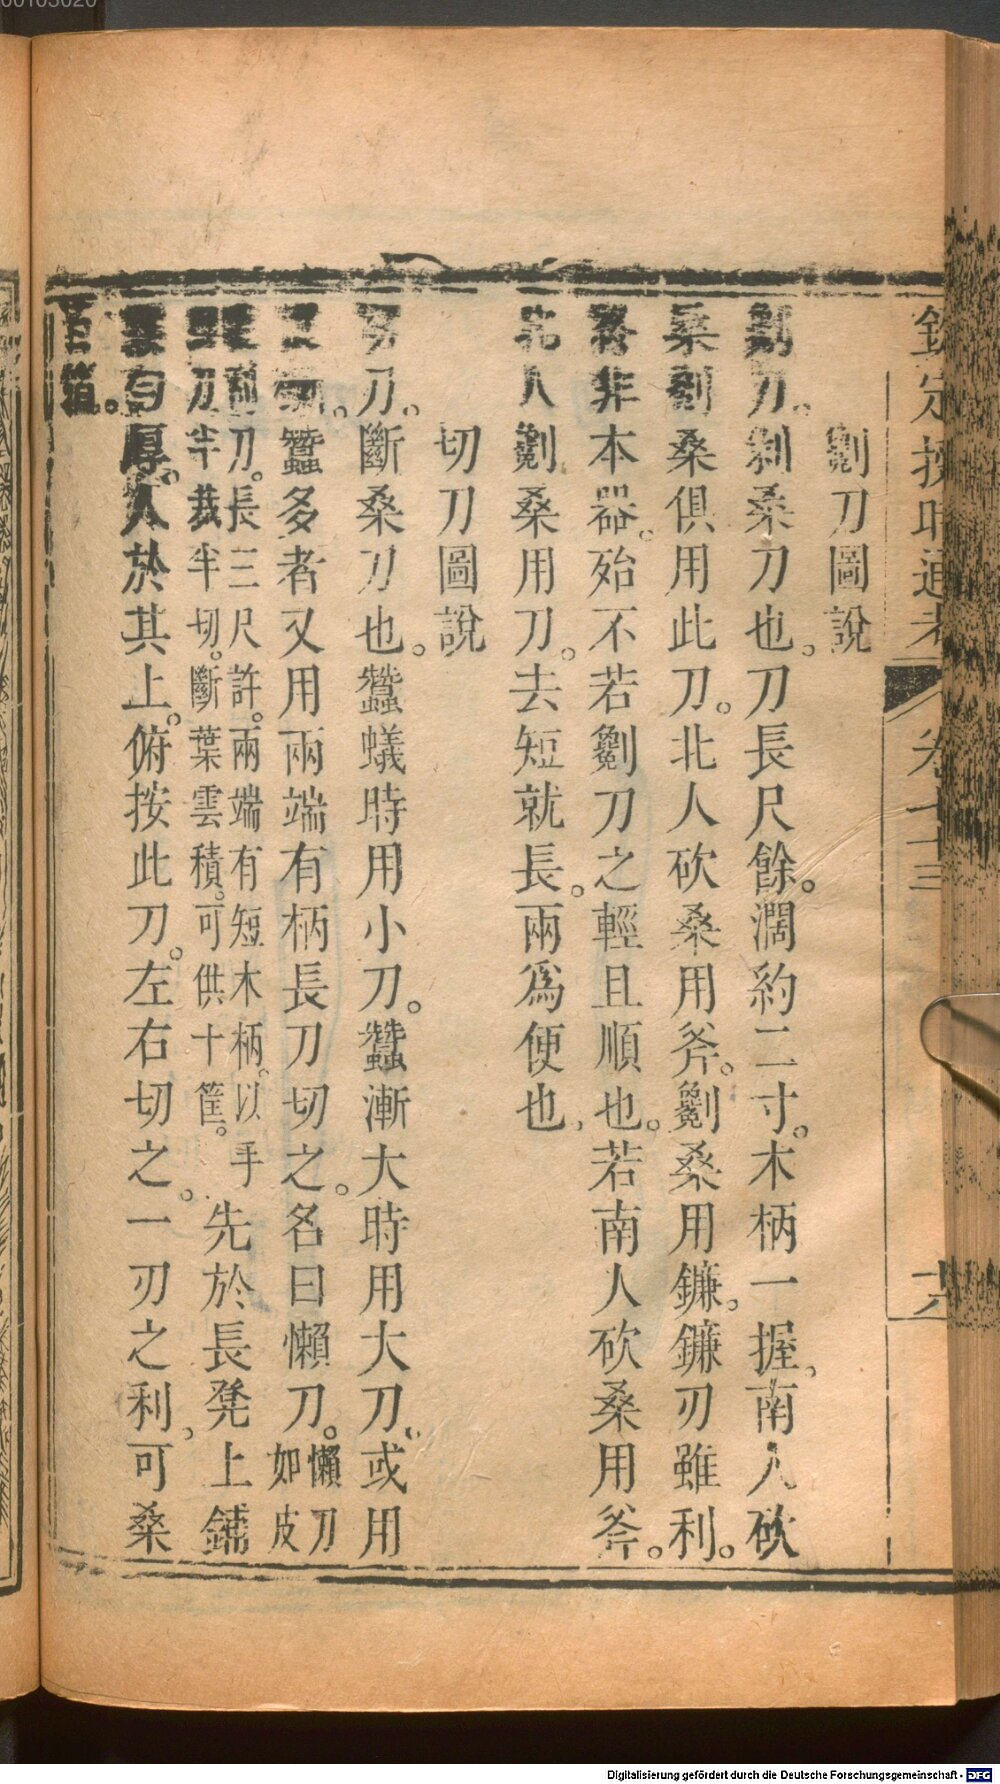 欽定授時通考 卷七十三 六
劖刀圖說
劖刀。剝桑刀也。刀長尺餘。濶約二寸。木柄一握。南人砍
桑剝桑俱用此刀。北人砍桑用斧。劖桑用鐮。鐮刃雖利。
終非本器。殆不若劖刀之輕且順也。若南人砍桑用斧。
北人劖桑用刀。去短就長。兩爲便也。
切刀圖說
切刀。斷桑刀也。蠶蟻時用小刀。蠶漸大時用大刀。或用
蠶多者又用兩端有柄長刀切之。名曰懶刀。懶刀如皮
刀。長三尺許。兩端有短木柄。以手
刀半裁半切。斷葉雲積。可供十筐。先於長凳上鋪
厚。人於其上。俯按此刀。左右切之。一刃之利。可桑
百箔。
Digitalisierung gefördert durch die Deutsche Forschungsgemeinschaft - DFG